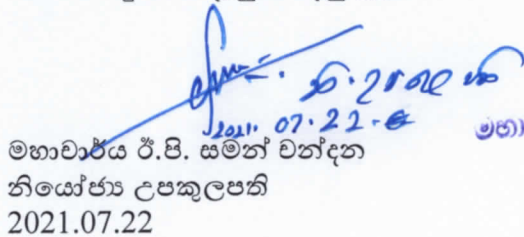 2021. 07. 22
මහා
මහාචාර්ය ඊ.පී. සමන් චන්දන
නියෝජ්‍ය උපකුලපති
2021.07.22